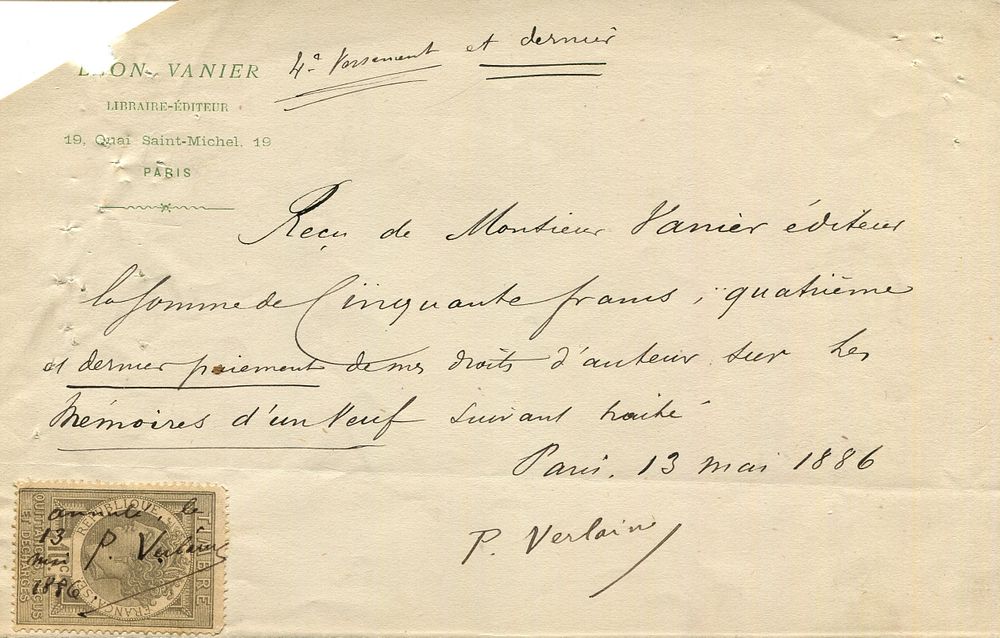 4e Versement et dernier
LÉON VANIER
LIBRAIRE-ÉDITEUR
19, Quai Saint-Michel, 19
PARIS
Reçu de Monsieur Vanier éditeur
la somme de Cinquante francs, quatrième
et dernier paiement de mes droits d'auteur sur les
Mémoires d'un Veuf suivant traité
Paris, 13 mai 1886
P. Verlaine
annulé, le
13
mai
1886
P. Verlaine
RÉPUBLIQUE
FRANÇAISE
TIMBRE
QUITTANCES REÇUS
ET DÉCHARGES
10c